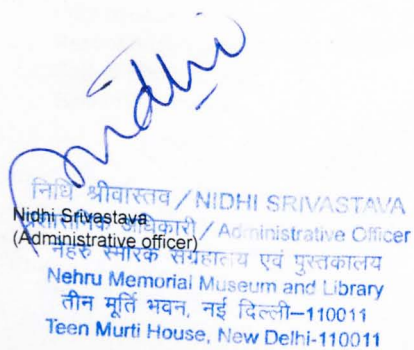 Nidhi
निधि श्रीवास्तव / NIDHI SRIVASTAVA
Nidhi Srivastava
प्रशासनिक अधिकारी / Administrative Officer
(Administrative officer)
नेहरू स्मारक संग्रहालय एवं पुस्तकालय
Nehru Memorial Museum and Library
तीन मूर्ति भवन, नई दिल्ली–110011
Teen Murti House, New Delhi-110011